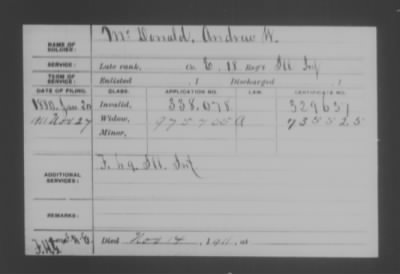 NAME OF SOLDIER: Mc Donald, Andrew W.
SERVICE: Late rank, Co. E, 18 Reg't Ill Inf
TERM OF SERVICE: Enlisted , 1 Discharged , 1
DATE OF FILING. CLASS. APPLICATION NO. LAW. CERTIFICATE NO.
1880 Jan 20 Invalid, 338.078 329651
1911 Nov 27 Widow, 975705 A 735525
Minor,
ADDITIONAL SERVICES: F. 49 Ill. Inf
REMARKS:
Died Nov 14, 1911, at